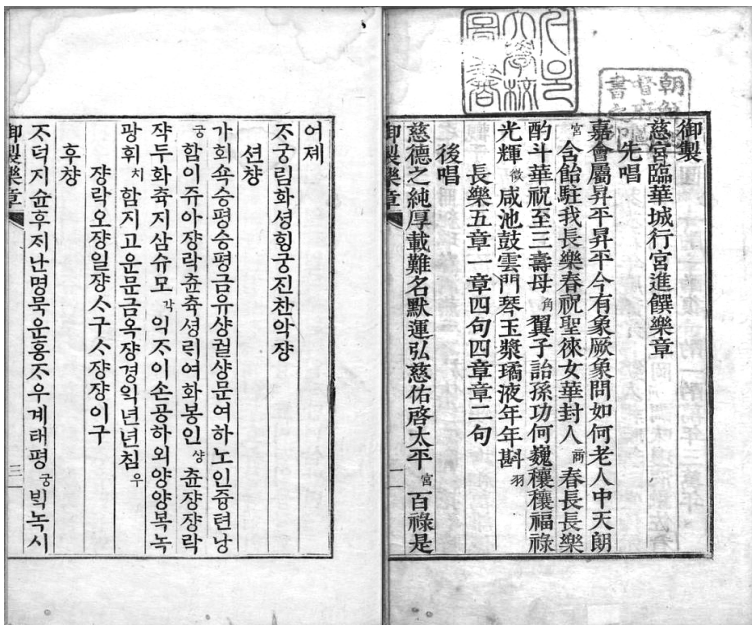 御製
慈宮臨華城行宮進饌樂章
先唱
嘉會屬昇平昇平今有象厥象問如何老人中天朗
宮 含飴駐我長樂春祝聖徠女華封人 商 春長長樂
酌斗華祝至三壽母 角 翼子詒孫功何巍穰穰福祿
光輝 徵 咸池鼓雲門琴玉漿璚液年年斟 羽
長樂五章一章四句四章章二句
後唱
慈德之純厚載難名默運弘慈佑啓太平 宮 百祿是
御製樂章
어졔
ᄌᆞ궁림화셩ᄒᆡᆼ궁진찬악쟝
션챵
가회쇽승평승평금유샹궐샹문여하노인즁텬낭
궁 함이쥬아쟝락츈츅셩ᄅᆡ여화봉인 샹 츈쟝쟝락
쟉두화츅지삼슈모 각 익ᄌᆞ이손공하외양양복녹
광휘 치 함지고운문금옥쟝경익년년침 우
쟝락오쟝일쟝ᄉᆞ구ᄉᆞ쟝쟝이구
후챵
ᄌᆞ덕지슌후ᄌᆡ난명묵운홍ᄌᆞ우계태평 궁 ᄇᆡᆨ녹시
御製樂章 三